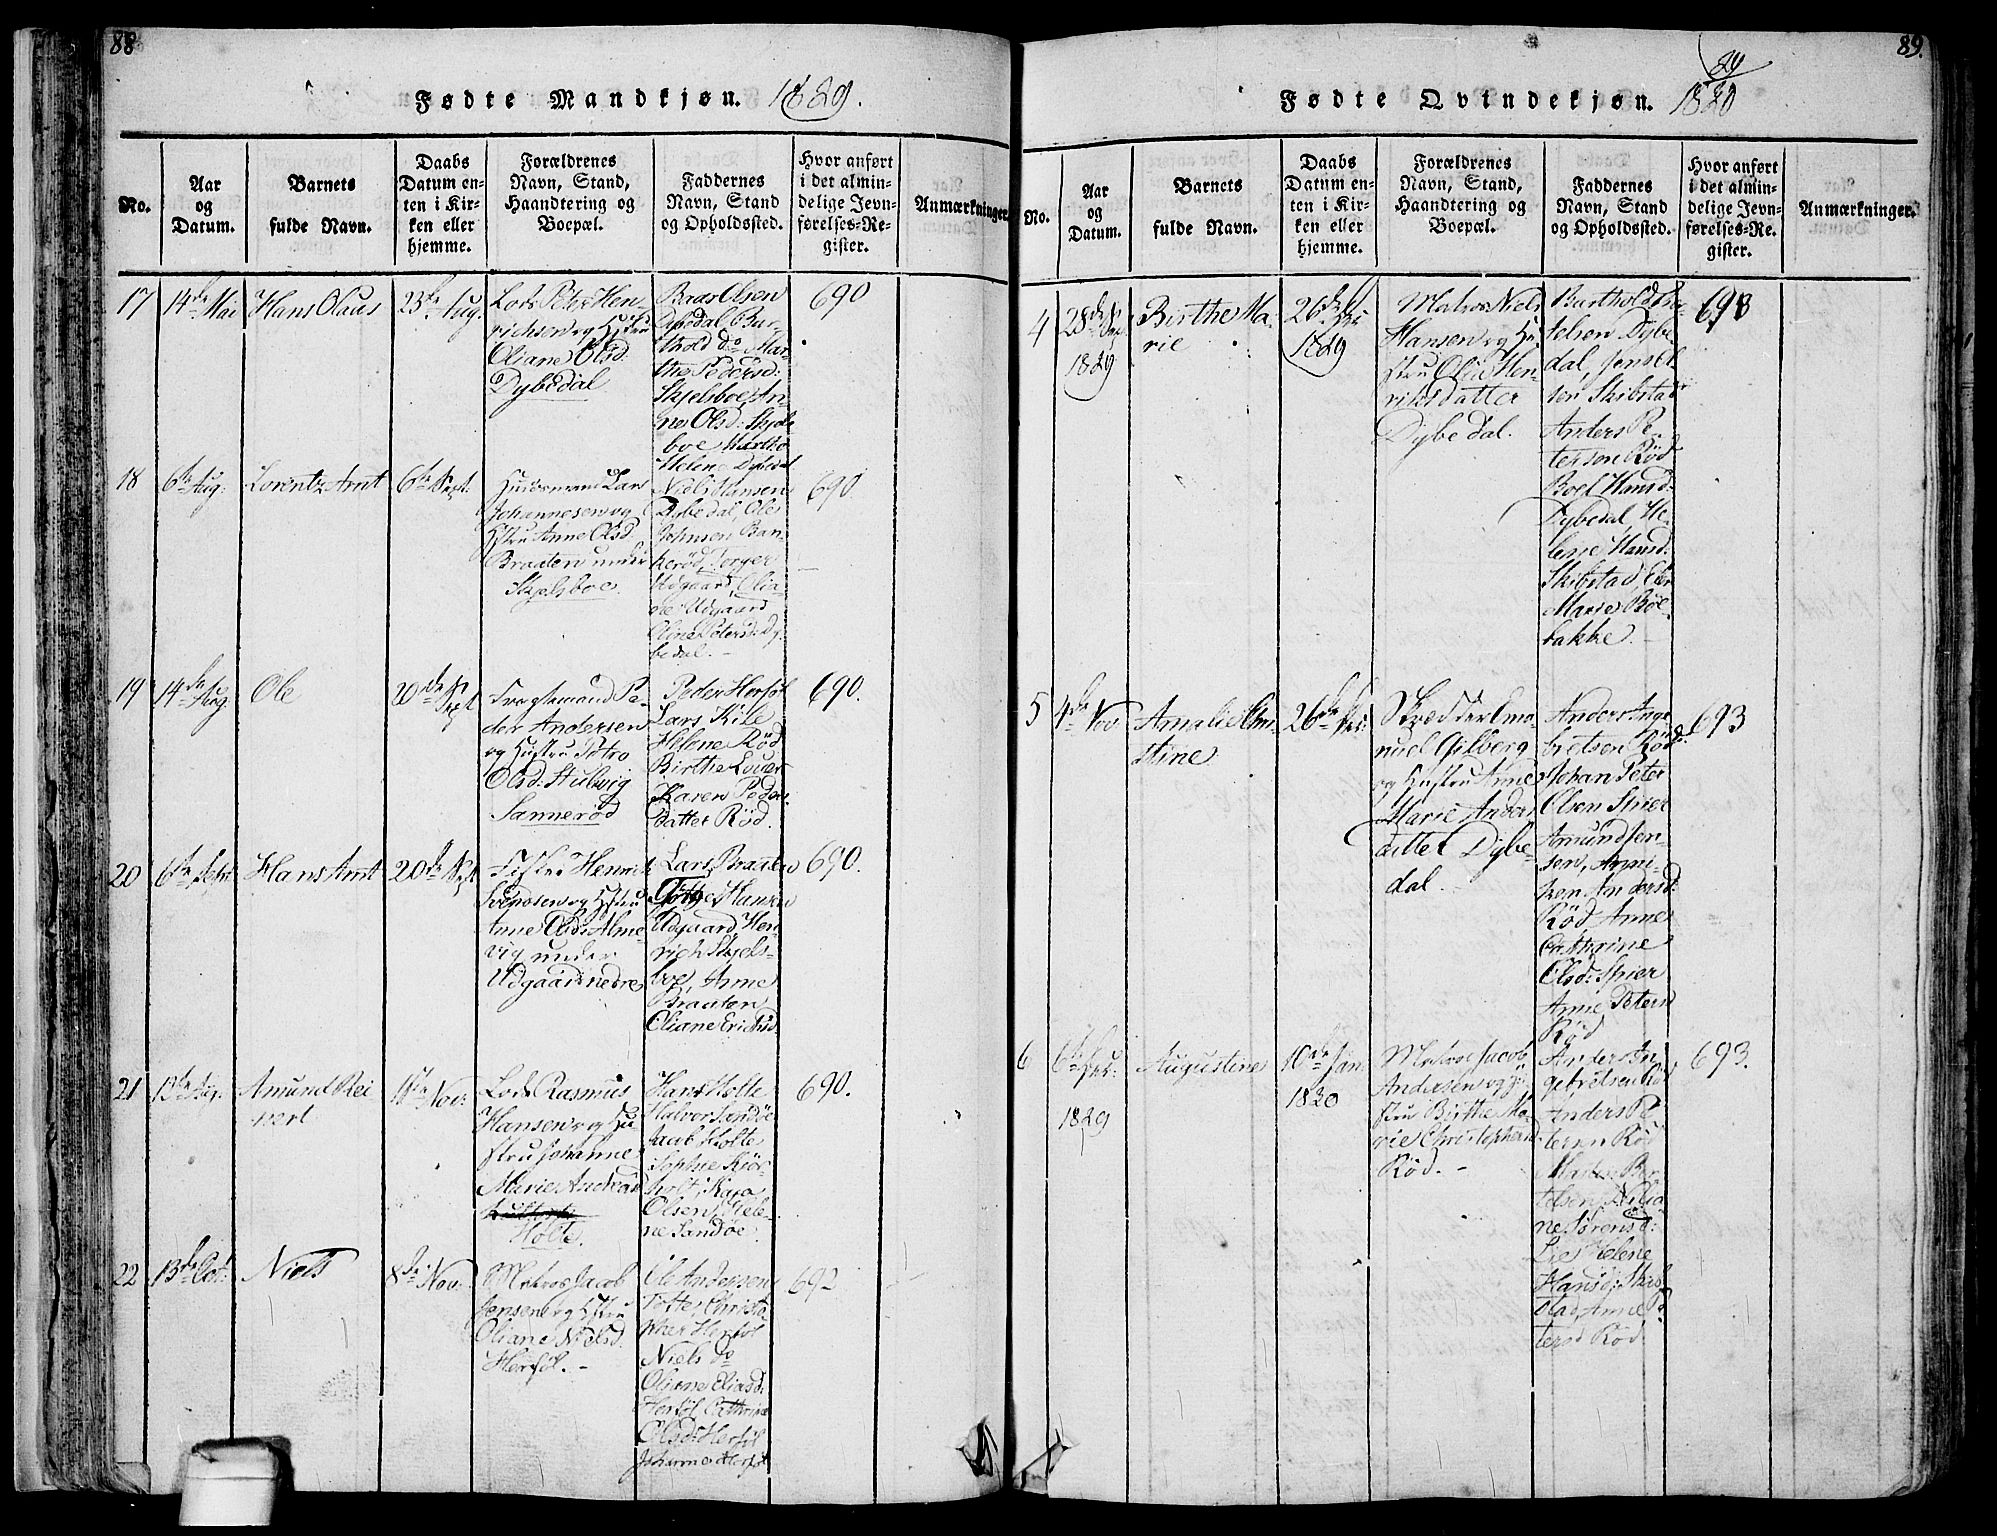 88
Fødte Mandkjøn. 1829.
No.
Aar
og
Datum.
Barnets
fulde Navn.
Daabs
Datum en-
ten i Kir-
ken eller
hjemme.
Forældrenes
Navn, Stand,
Haandtering og
Boepæl.
Faddernes
Navn, Stand
og Opholdssted.
Hvor anført
i det almin-
delige Jevn-
førelses-Re-
gister.
Anmærkninger.
17
14de Mai
Hans Olaus
23de Aug.
Lods Peter Hen
richsen og Hustru
Oliane Olsd.
Dybedal
Baar Olsen
Dybedal Bar-
thold do Mar-
the Pedersd:
Skjelsboe, An-
ne Olsd: Skjels
boe Marthe
Helene Dybedal
690
18
6te Aug:
Lorentz Arnt
6te Sept.
Huusmand Lars
Johannesen og
Hstru Anne Olsd.
Braaten under
Skjelsboe.
Niels Hansen
Dybedal, Ole
Johnsen Ban-
kerød, Torger
Udgaard, Olia-
ne Udgaard
Oline Petersd. Dy-
bedal. -
690
19
14de Aug.
Ole
20de Sept
Pe-
der Andersen
og Hustru Petro
Olsd: Stulwig
Sannerød
Peder Hersøl
Lars Kile
Helene Rød
Birthe Lover
Karen Peders-
datter Rød.
690.
20
6te Sept
Hans Arnt
20de Sept
Fisker Henrik
Svendsen og Hstru
Anne Olsd. Alme-
vig under
Udgaard nedre
Lars Braaten
Tøthe Hansen
Udgaard, Hen-
rich Skjels-
boe, Anne
Braaten
Oliane Erichsd.
690.
21
Amund Rei
nert
1ste Nov:
Lods Rasmus
Hansen og Hu-
stru Johanne
Marie Andreas
Holte.
Hans Holte
Halvor Sandøe
Jacob Holte
Sophie Kiør-
holt, Kaja
Olsen, Hele-
ne Sandøe.
690.
22
13de Oct:
Niels
8de Nov:
Matros Jacob
Jensen og Hstru
Oliane Nielsd.
Hersøl. -
Ole Andersen
Tøtte, Christo
pher Hersøl
Niels do
Oliane Eliasd:
Hersøl Cathrine
Olsd: Hersøl
Johanne Hersøl
692
89.
Fødte Qvindekjøn. 1820
29
No.
Aar
og
Datum.
Barnets
fulde Navn.
Daabs
Datum en-
ten i Kir-
ken eller
hjemme.
Forældrenes
Navn, Stand,
Haandtering og
Boepæl.
Faddernes
Navn, Stand
og Opholdssted.
Hvor anført
i det almin-
delige Jevn-
førelses-Re-
gister.
Anmærkninger.
4
28de Sept
1829
Birthe Ma-
rie
26de Dec
1829
Matros Niels
Hansen og Hu-
stru Olia Hen-
riksdatter
Dybedal.
Barthold
Dybe-
dal, Jens
sen Skibstad
Anders Pe-
tersen Rød
Boel Hansd:
Dybedal, He-
lene Hansd.
Skibstad, Elen
Marie Bøe-
bakke. -
693
5
4de Nov
Amalie Chri-
stine
26de Dec:
Skredder Ema-
nuel Gilberg
og Hustru Anne
Marie Anders
datter Dybe-
dal.
Anders Inge-
bretsen Rød
Johan Peter
Olsen Spier
Amundsen-
sen, Anni-
ken Andersd:
Rød, Anne
Cathrine
Olsd: Spier
Anne Petersd
Rød
693
6
6te Dec.
1829
Augustine
10de Jan
1830
Matros Jacob
Andersen og Hu-
stru Birthe Ma-
rie Christophersd
Rød. -
Anders In
gebretsen Rød
Anders Pe-
tersen Rød
Morten Ber
telsen, Nilia
ne Sørensd:
Lie Helene
Hansd: Skib
stad, Anne Pe
tersd Rød.
693.